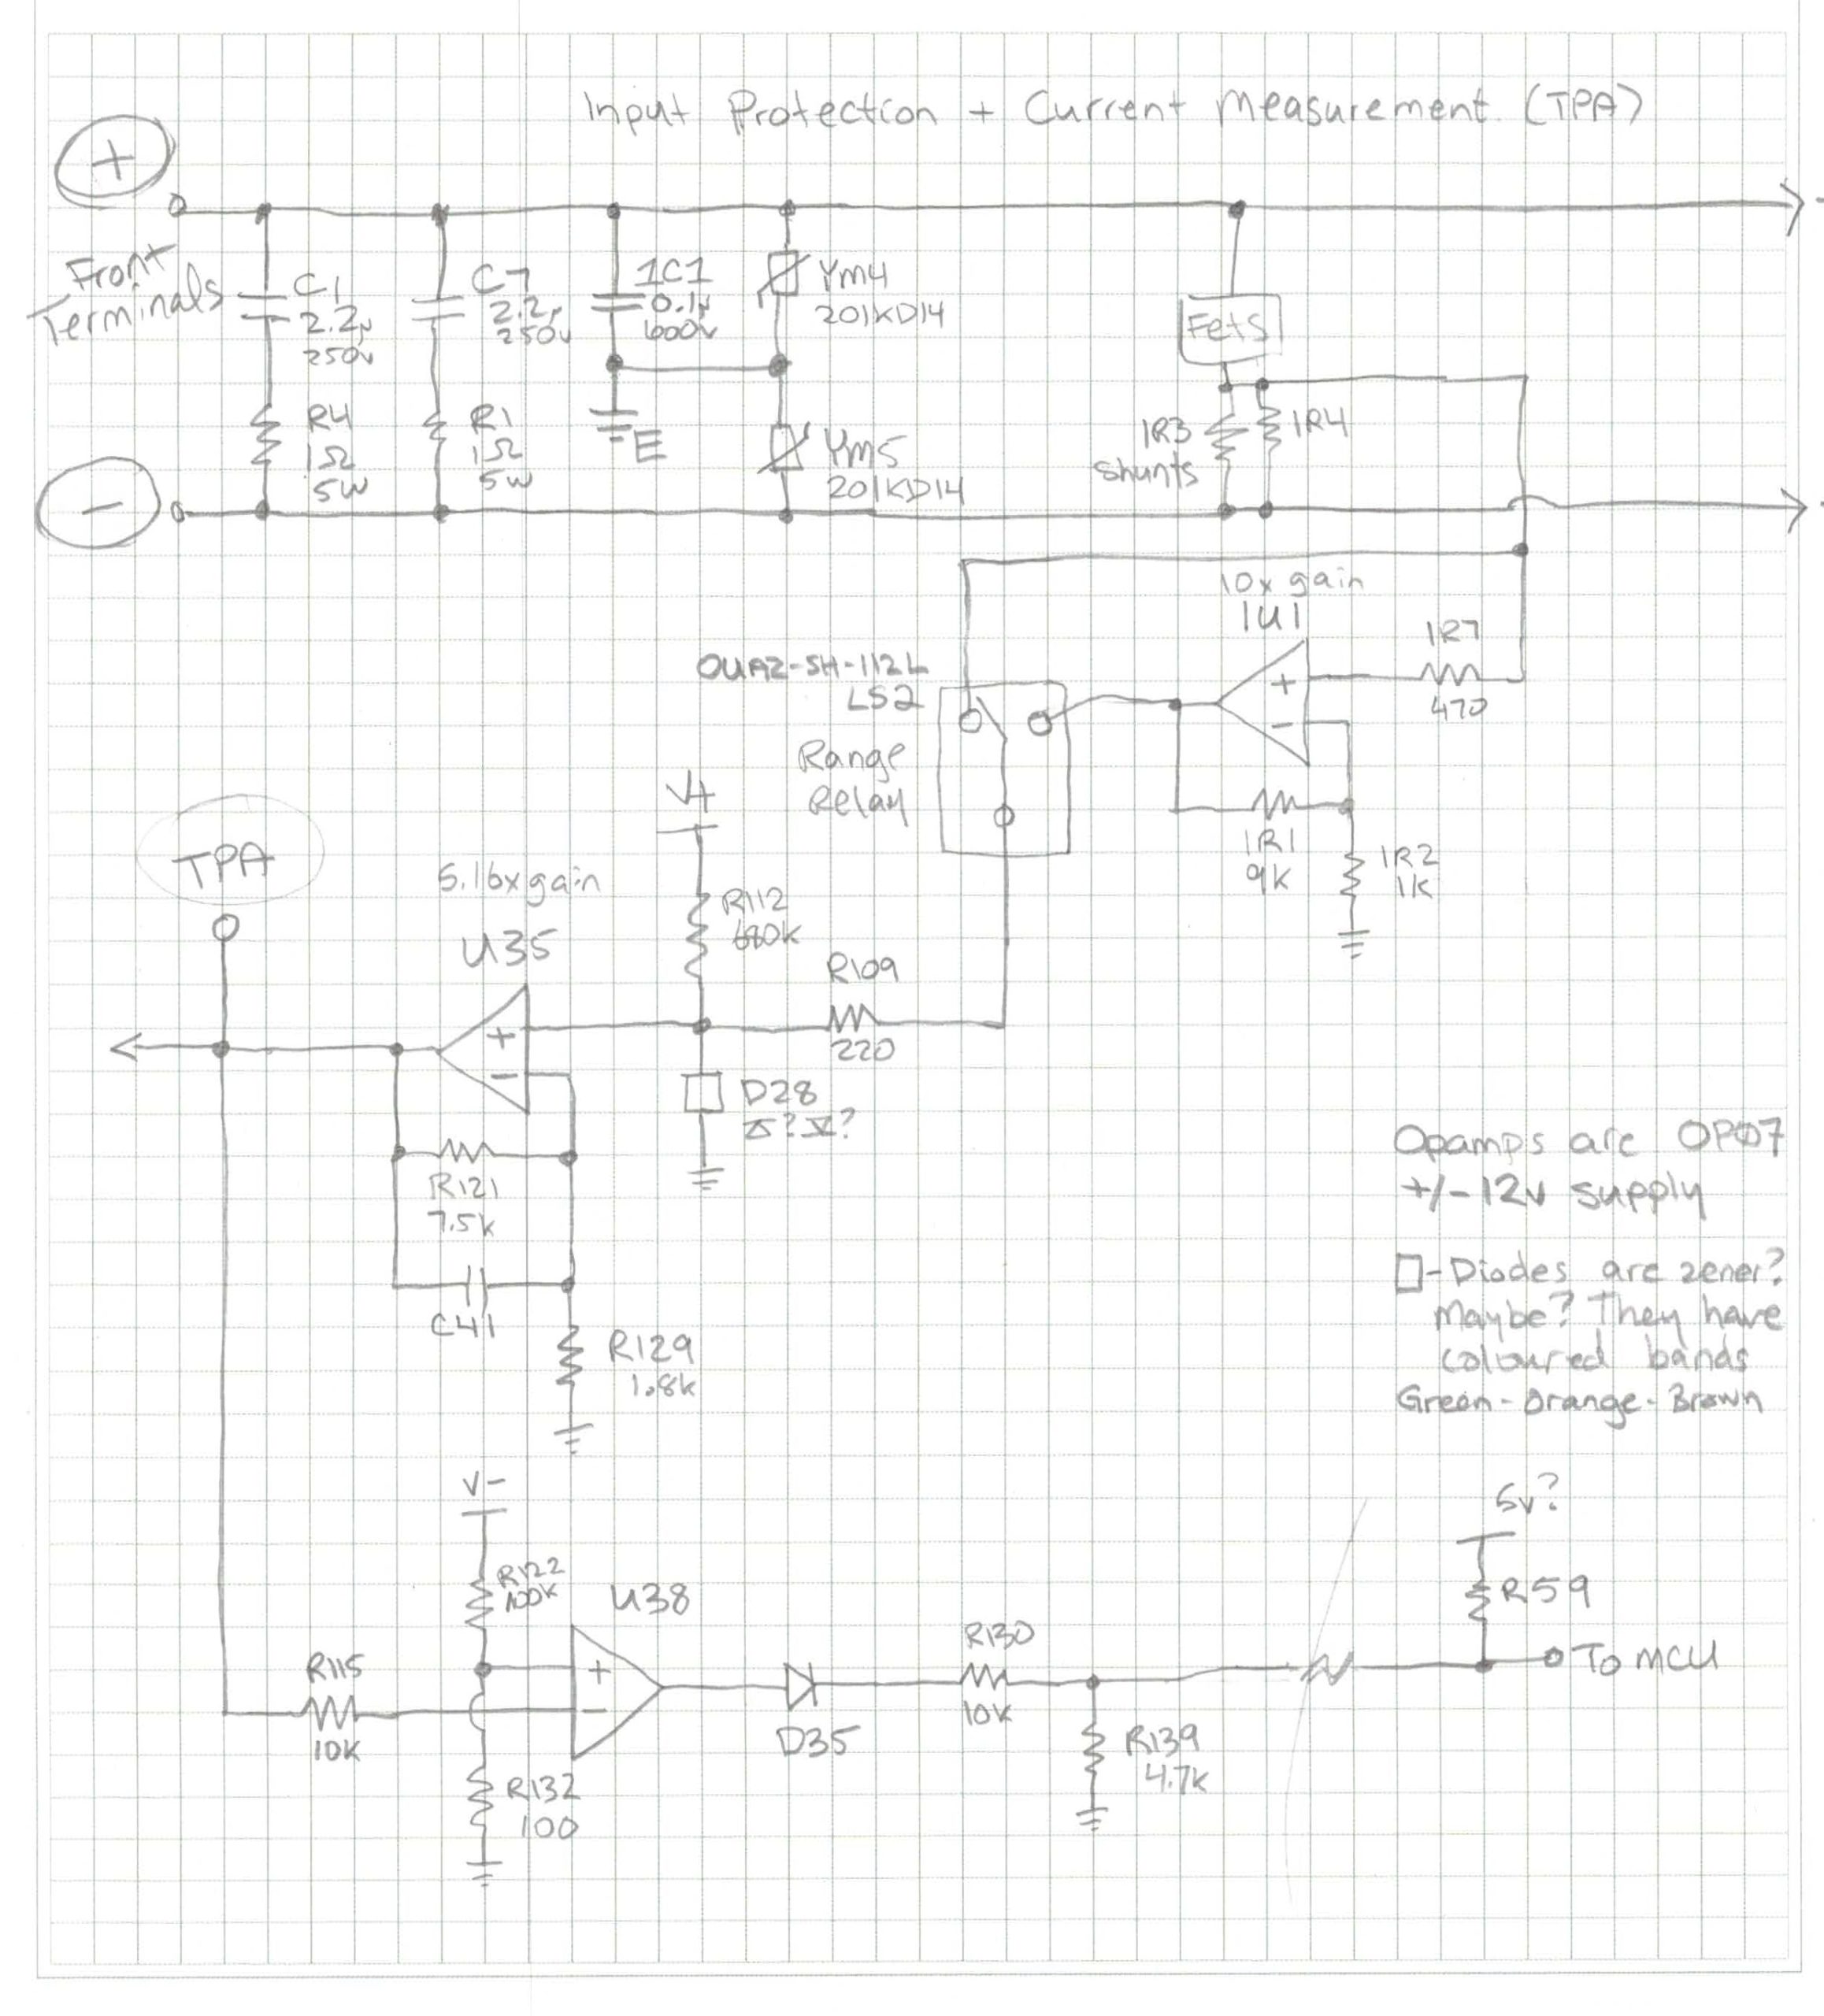 Input Protection + Current Measurement (TPA)
+
Front
Terminals
C1
2.2µ
250v
C7
2.2µ
250v
1C1
0.1µ
600v
Ym4
201KD14
Fets
R4
1Ω
5W
R1
1Ω
5W
E
Ym5
201KD14
1R3
Shunts
1R4
-
10x gain
1U1
1R7
470
+
-
OUAZ-SH-112L
LS2
Range
Relay
1R1
9K
1R2
1K
V+
TPA
5.16x gain
U35
R112
R109
220
+
-
D28
R121
7.5K
C41
R129
1.8K
Opamps are OP07
+/-12v supply
-Diodes are zener?
Maybe? They have
coloured bands
Green-Orange-Brown
V-
R122
100K
U38
+
-
R115
10K
R132
100
D35
R130
10K
R139
4.7K
5v?
R59
To MCU